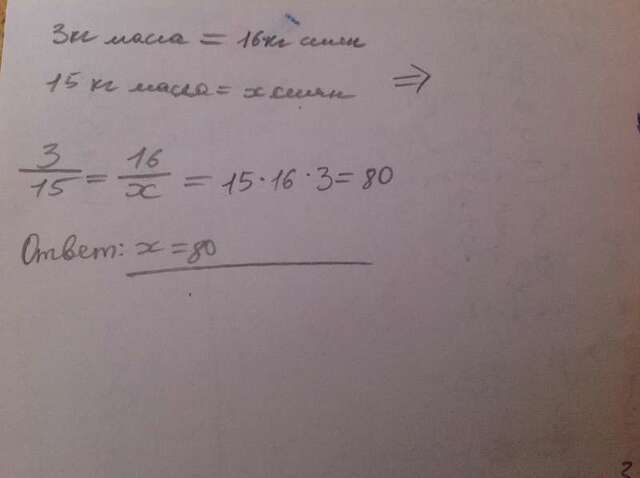 3кг масла = 16кг семян
15 кг масла = x семян ⇒
3/15 = 16/x = 15·16·3=80
Ответ: x=80
2